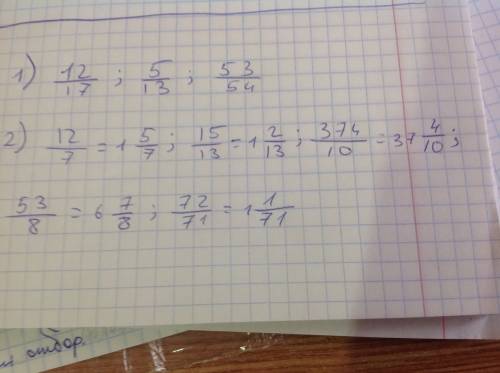 1) 12/17 ; 5/13 ; 53/54
2) 12/7 = 1 5/7 ; 15/13 = 1 2/13 ; 374/10 = 37 4/10 ;
53/8 = 6 7/8 ; 72/71 = 1 1/71
отбор.